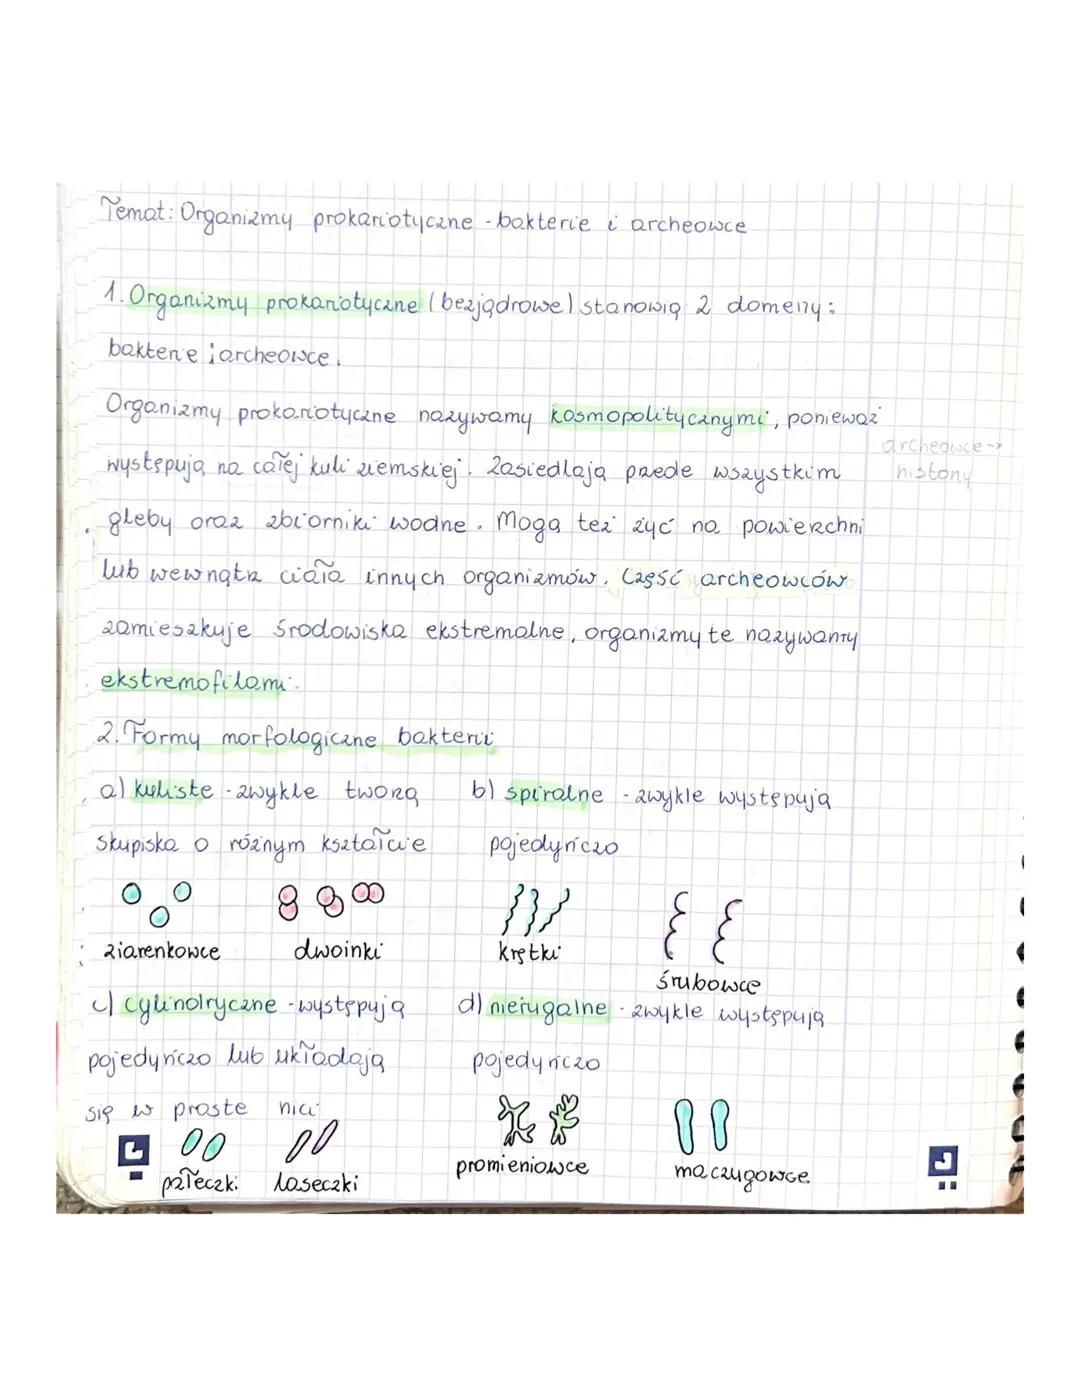 Temat: Organizmy prokariotyczne - bakterie i archeowce
1. Organizmy prokariotyczne (bezjądrowe) stanowią 2 domeny:
bakterie i archeowce.
Organizmy prokariotyczne nazywamy kosmopolitycznymi, ponieważ
archeowce →
histony
występują na całej kuli ziemskiej. Zasiedlają przede wszystkim
gleby oraz zbiorniki wodne. Mogą też żyć na powierzchni
lub wewnątrz ciała innych organizmów. Część archeowców
zamieszkuje środowiska ekstremalne, organizmy te nazywamy
ekstremofilami.
2. Formy morfologiczne bakterii
a) kuliste - zwykle tworzą
skupiska o różnym kształcie
ziarenkowce dwoinki
b) spiralne - zwykle występują
pojedyńczo
krętki śrubowce
c) cylindryczne - występują
pojedyńczo lub układają
się w proste nici
pałeczki laseczki
d) nierugalne - zwykle występują
pojedyńczo
promieniowce maczugowce